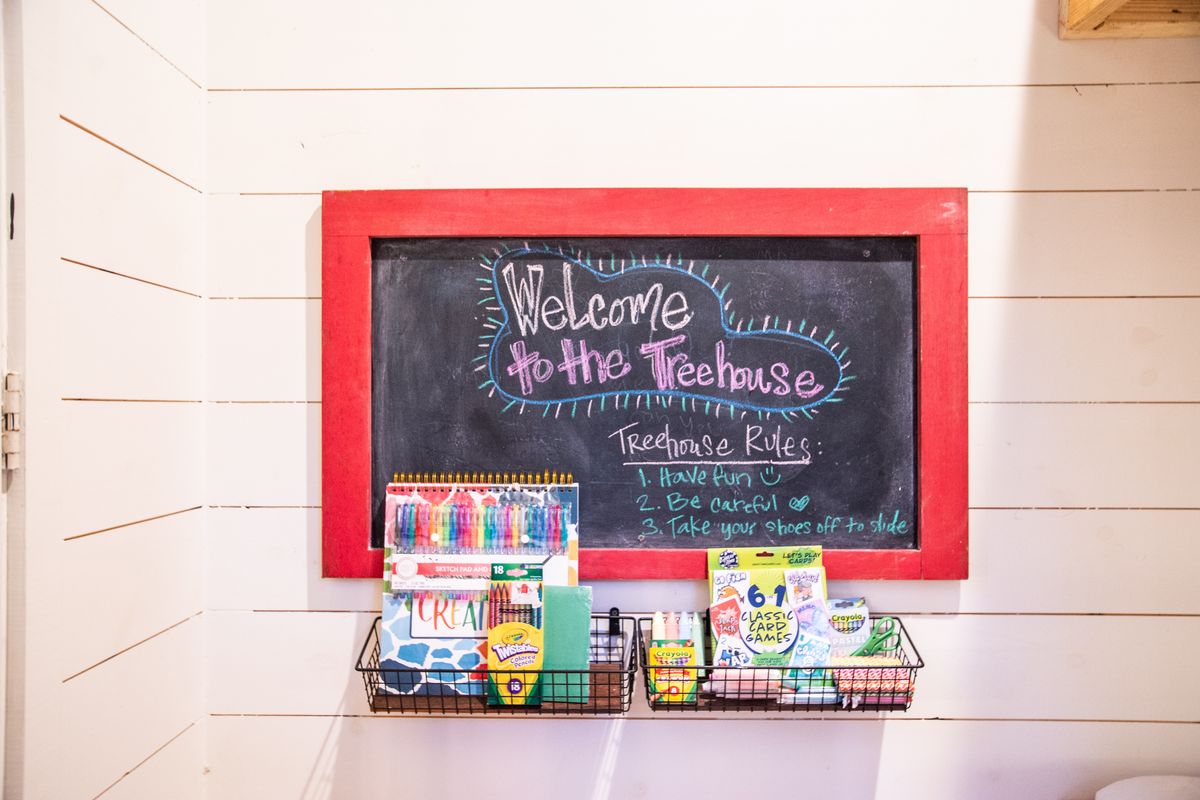 Welcome
to the Treehouse
Treehouse Rules:
1. Have fun
2. Be careful
3. Take your shoes off to slide
SKETCH PAD AND
18
CREAT
Crayola
Twistables
Colored
Pencils
18
LET'S PLAY
CARDS!
GO FISH
6 in 1
CLASSIC
CARD
GAMES
Crayola
Crayola
PASTEL